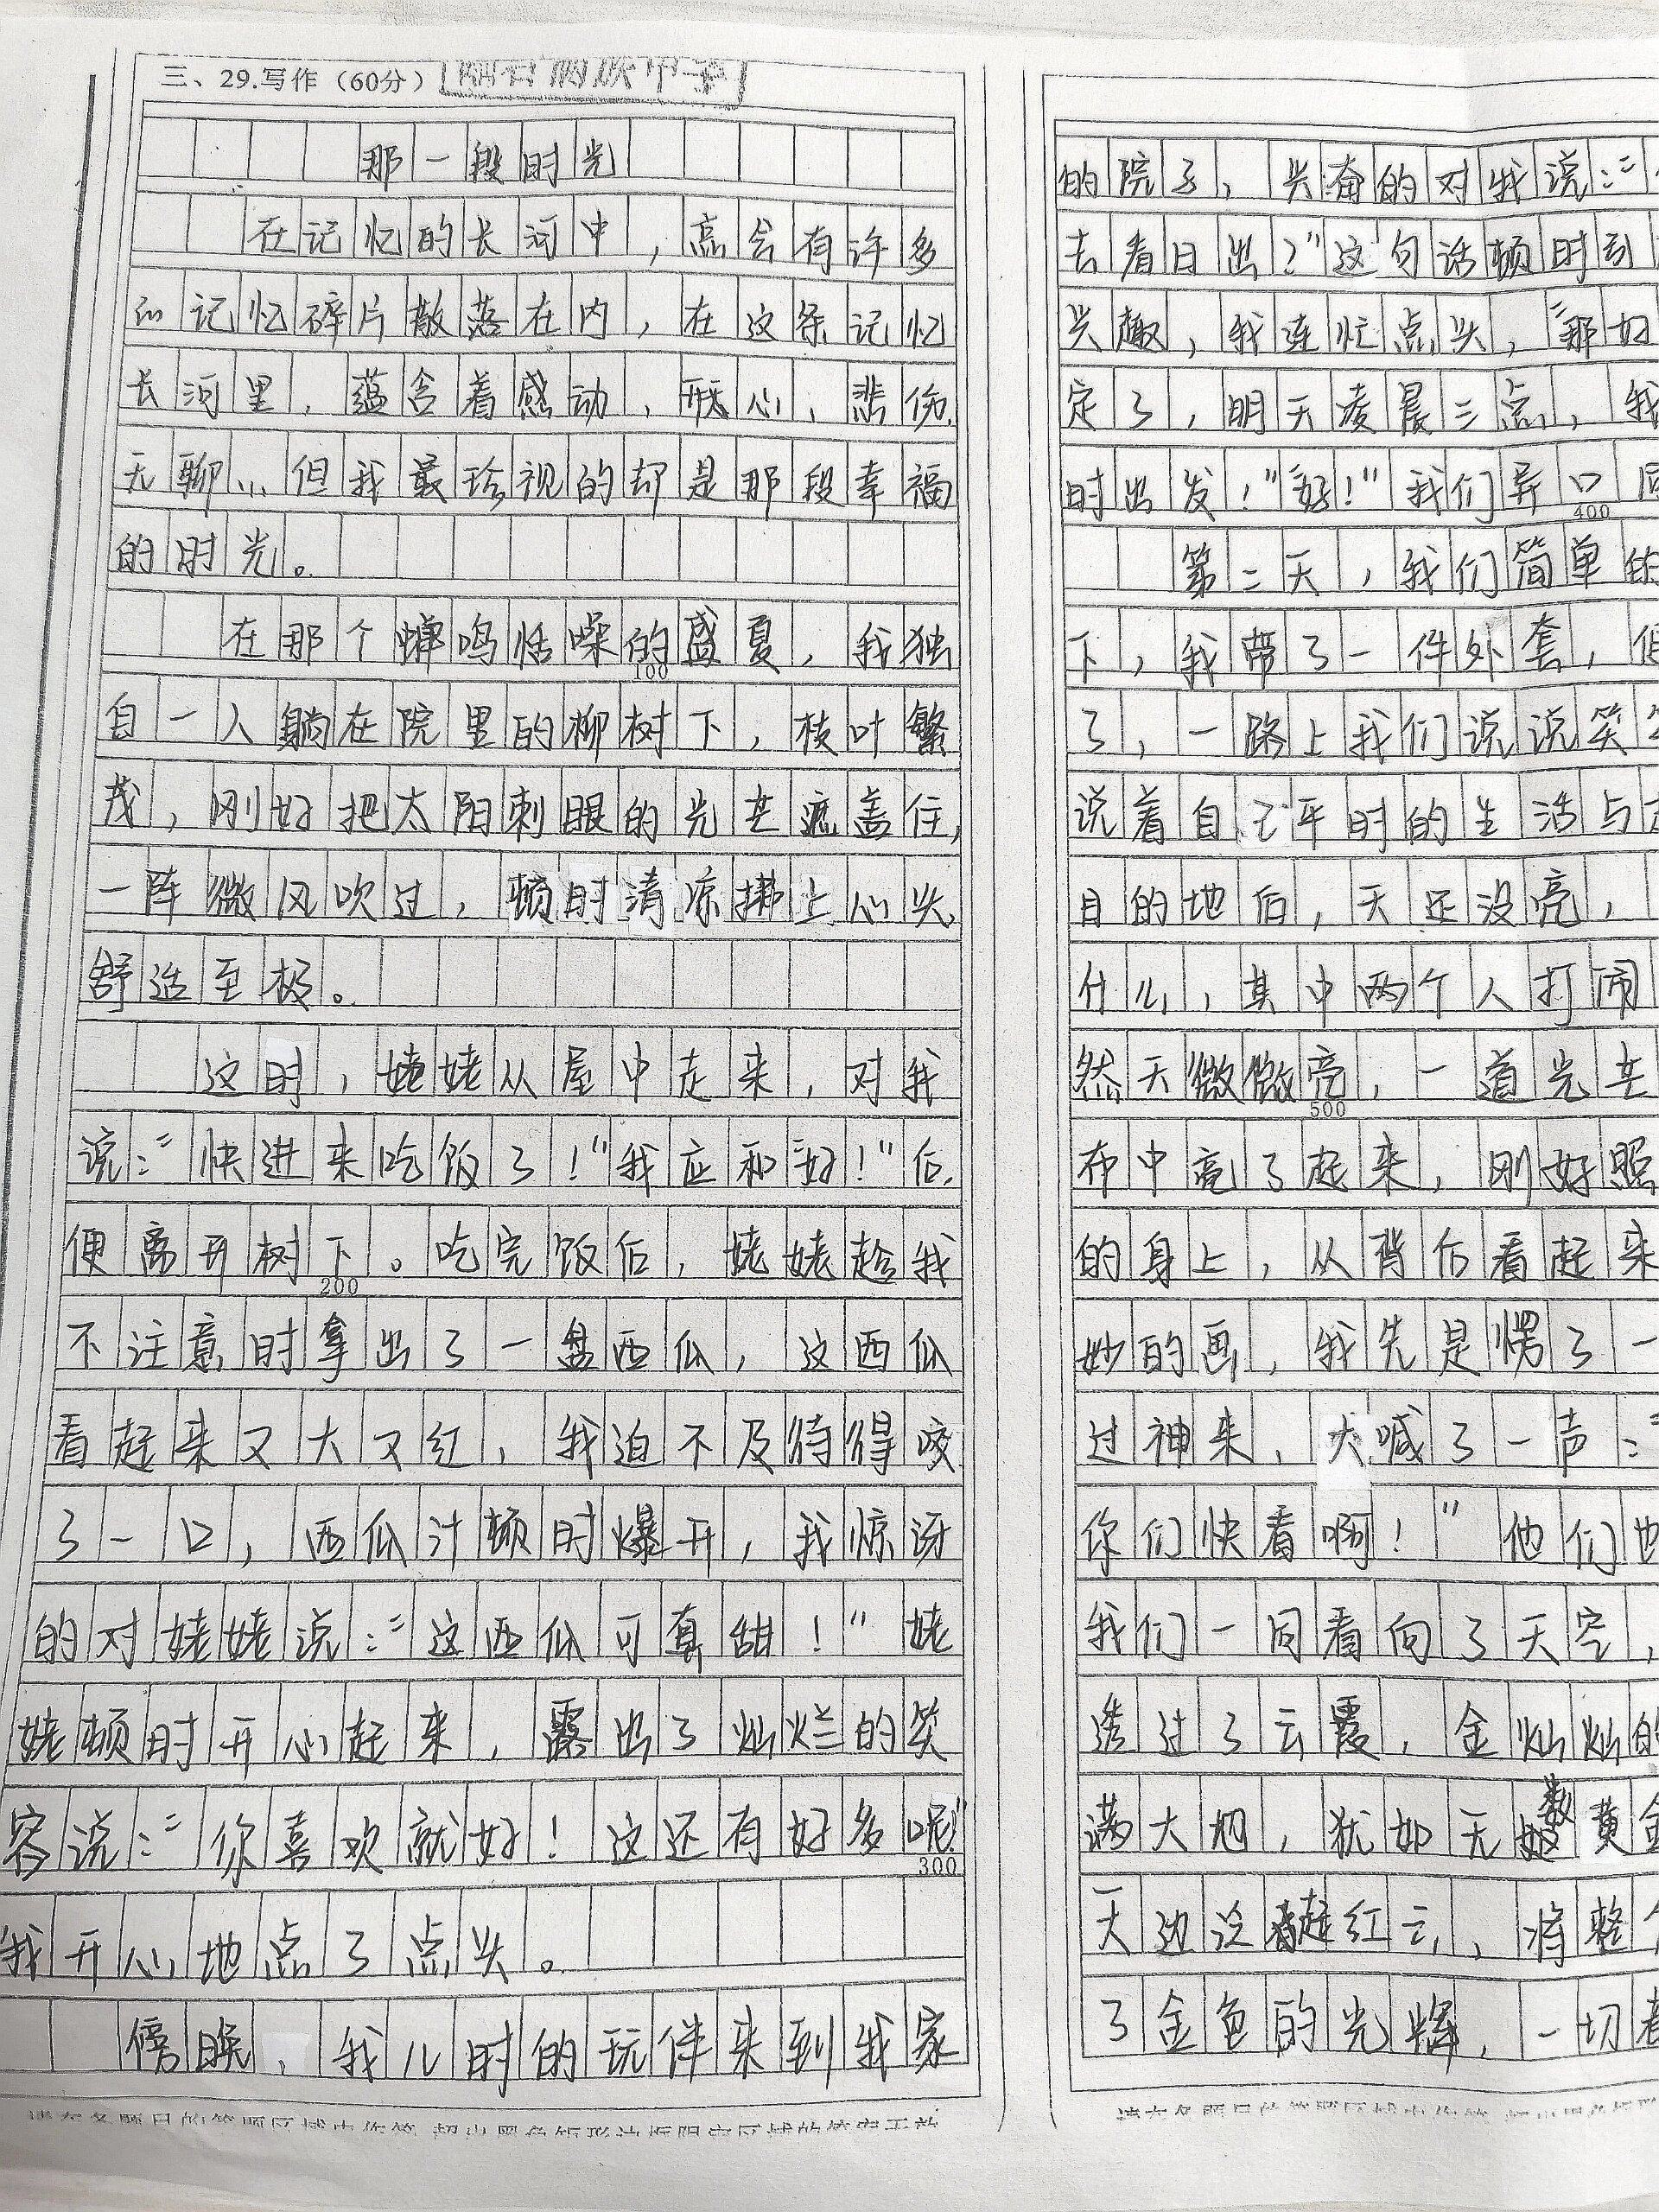 三、29.写作（60分）
那一段时光
在记忆的长河中，总会有许多
的记忆碎片散落在内，在这条记忆
长河里，蕴含着感动、开心、悲伤、
无聊…但我最珍视的却是那段幸福
的时光。
在那个蝉鸣恬噪的盛夏，我独
100
自一人躺在院里的柳树下，枝叶繁
茂，刚好把太阳刺眼的光芒遮盖住，
一阵微风吹过，顿时清凉拂上心头，
舒适至极。
这时，姥姥从屋中走来，对我
说：“快进来吃饭了！”我应和“好！”后，
便离开树下。吃完饭后，姥姥趁我
200
不注意时拿出了一盘西瓜，这西瓜
看起来又大又红，我迫不及待得咬
了一口，西瓜汁顿时爆开，我惊讶
的对姥姥说：“这西瓜可真甜！”姥
姥顿时开心起来，露出了灿烂的笑
容说：“你喜欢就好！这还有好多呢”
300
我开心地点了点头。
傍晚，我儿时的玩伴来到我家
的院子，兴奋的对我说：“
去看日出？”这句话顿时引
兴趣，我连忙点头，“那好
定了，明天凌晨三点，我
时出发！”“好！”我们异口同
400
第二天，我们简单的
下，我带了一件外套，便
了，一路上我们说说笑笑
说着自己平时的生活与
目的地后，天还没亮，
什么，其中两个人打闹
然天微微亮，一道光芒
500
布中亮了起来，刚好照
的身上，从背后看起来
妙的画，我先是愣了一
过神来，大喊了一声：“
你们快看啊！”他们也
我们一同看向了天空，
透过了云霞，金灿灿的
满大地，犹如无数黄金
天边泛起红云，将整个
了金色的光辉，一切都